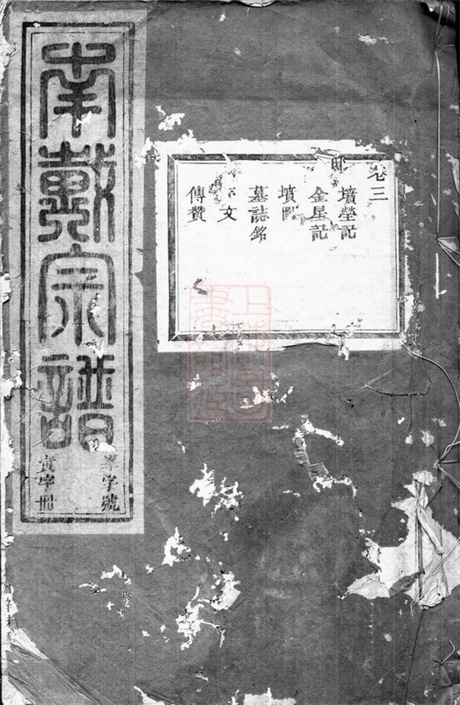 南戴宗譜
字號
字冊
卷三
墳塋記
金星記
墳
墓誌銘
文
傳贊